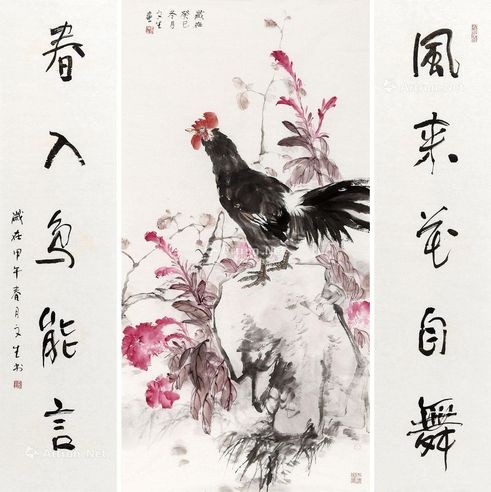 風来花自舞
歲在
癸巳
冬月
文生
畫
春入鳥能言
歲在甲午春月文生书
Artron.Net